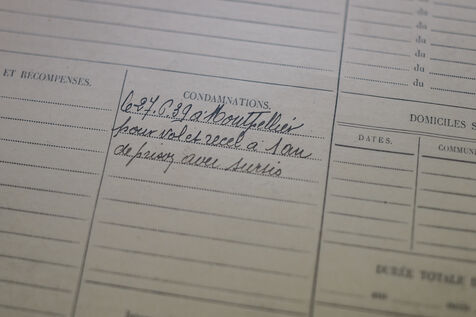 du
du
du
du
du
du
ET RÉCOMPENSES.
CONDAMNATIONS.
le 27.6.39 à Montpellier
pour vol et recel à 1 an
de prison avec sursis
DOMICILES S
DATES.
COMMUN
DURÉE TOTALE D